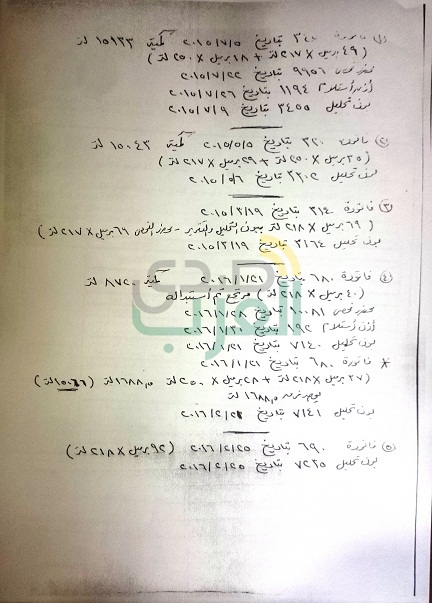 (١) فاتورة ٢٤٠ بتاريخ ٢٠١٥/٧/٥ كمية ١٥١٣٣ لتر
(٤٩ برميل × ٢١٧ لتر + ١٨ برميل × ٢٥٠ لتر)
محضر فحص ٩٩٥٦ بتاريخ ٢٠١٥/٧/٢٢
أذن أستلام ١١٩٤ بتاريخ ٢٠١٥/٧/٢٦
بون تحليل ٣٤٥٥ بتاريخ ٢٠١٥/٧/٩
(٢) فاتورة ٣٢٠ بتاريخ ٢٠١٥/٥/٥ كمية ١٥٠٤٣ لتر
(٣٥ برميل × ٢٥٠ لتر + ٢٩ برميل × ٢١٧ لتر)
بون تحليل ٣٣٠٢ بتاريخ ٢٠١٥/٥/٦
(٣) فاتورة ٣١٤ بتاريخ ٢٠١٥/٣/١٩
(٦٩ برميل × ٢١٨ لتر بيون التحليل والتقرير - محضر الفحص ٦٩ برميل × ٢١٧ لتر)
بون تحليل ٣١٦٤ بتاريخ ٢٠١٥/٣/١٩
(٤) فاتورة ٦٨٠ بتاريخ ٢٠١٦/١/٢١ كمية ٨٧٢٠ لتر
(٤٠ برميل × ٢١٨ لتر) مرتجع تم أستبداله
محضر فحص ١٠٠٨١ بتاريخ ٢٠١٦/١/٢٨
أذن أستلام ١٩٢ بتاريخ ٢٠١٦/١/٣٠
بون تحليل ٧١٤٠ بتاريخ ٢٠١٦/١/٢١
* فاتورة ٦٨٠ بتاريخ ٢٠١٦/١/٢١
(٣٧ برميل × ٢١٨ لتر + ٢٨ برميل × ٢٥٠ لتر ١٦٨٨,٥ لتر (١٥٠٦٦ لتر)
١٦٨٨,٥ لتر
بون تحليل ٧١٤١ بتاريخ ٢٠١٦/٢/٢١
(٥) فاتورة ٦٩٠ بتاريخ ٢٠١٦/٢/٢٥ (٩٢ برميل × ٢١٨ لتر)
بون تحليل ٧٢٣٥ بتاريخ ٢٠١٦/٢/٢٥
صدى العرب